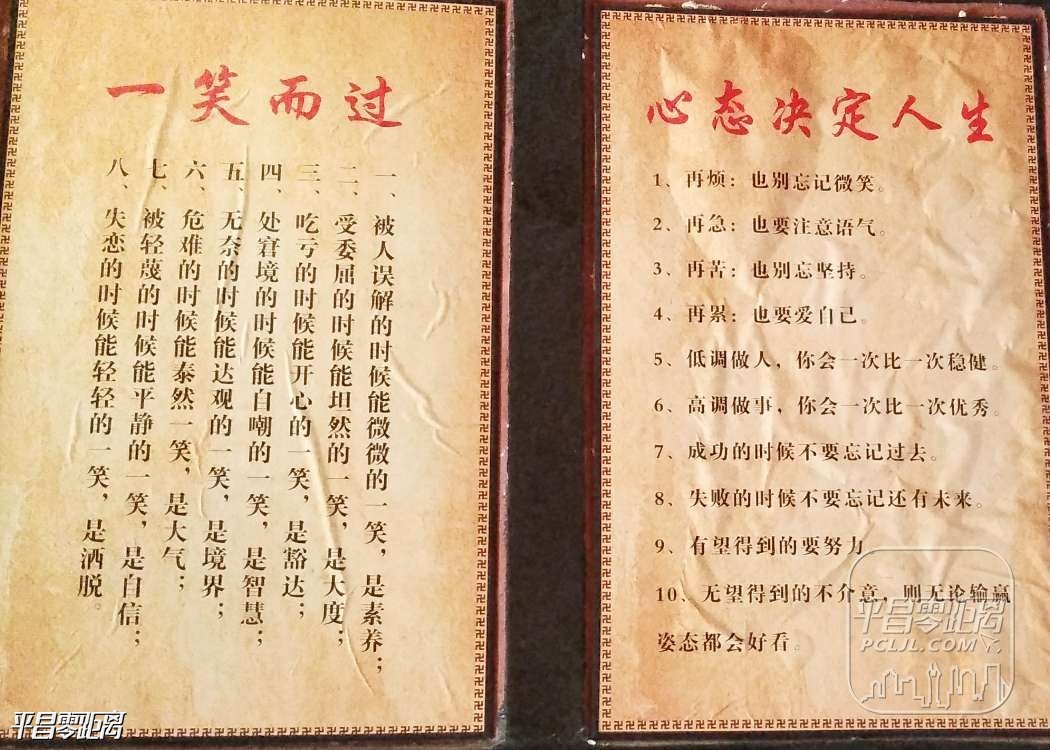 一笑而过
一、被人误解的时候能微微的一笑，是素养；
二、受委屈的时候能坦然的一笑，是大度；
三、吃亏的时候能开心的一笑，是豁达；
四、处窘境的时候能自嘲的一笑，是智慧；
五、无奈的时候能达观的一笑，是境界；
六、危难的时候能泰然一笑，是大气；
七、被轻蔑的时候能平静的一笑，是自信；
八、失恋的时候能轻轻的一笑，是洒脱。
心态决定人生
1、再烦：也别忘记微笑。
2、再急：也要注意语气。
3、再苦：也别忘坚持。
4、再累：也要爱自己。
5、低调做人，你会一次比一次稳健。
6、高调做事，你会一次比一次优秀。
7、成功的时候不要忘记过去。
8、失败的时候不要忘记还有未来。
9、有望得到的要努力
10、无望得到的不介意，则无论输赢
姿态都会好看。
平昌零距离
PCLJL.COM
平昌零距离